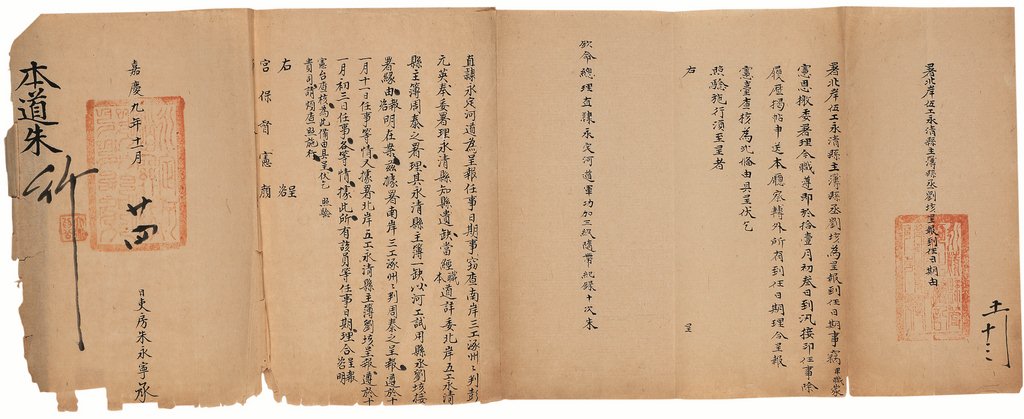 署北岸伍工永清縣主簿縣丞劉垓呈報到任日期由
十一 十三
署北岸伍工永清縣主簿縣丞劉垓為呈報到任日期事竊卑職蒙
憲恩檄委署理今職遵即於拾壹月初叁日到汛接印任事除
履歷揭帖申送本廳察轉外所有到任日期理合呈報
憲臺查核為此備由具呈伏乞
照驗施行須至呈者
右
呈
欽命總理直隸永定河道軍功加三級隨帶紀錄十次朱
直隸永定河道為呈報任事日期事竊查南岸三工涿州州判彭
元英奉委署理永清縣知縣遺缺當經職本道詳委北岸五工永清
縣主簿周秦之署理其永清縣主簿一缺以河工試用縣丞劉垓接
署緣由呈報咨明在案茲據署南岸三工涿州州判周秦之呈報遵於十
一月十一日任事等情又據署北岸五工永清縣主簿劉垓呈報遵於十
一月初三日任事各等情據此所有該員等任事日期理合呈報咨明
憲台查核為此備由具呈伏乞 照驗
貴司請煩查照施行
右 呈咨
宮保督憲顏
嘉慶九年十一月 廿四
日吏房朱永寧承
本道朱 行